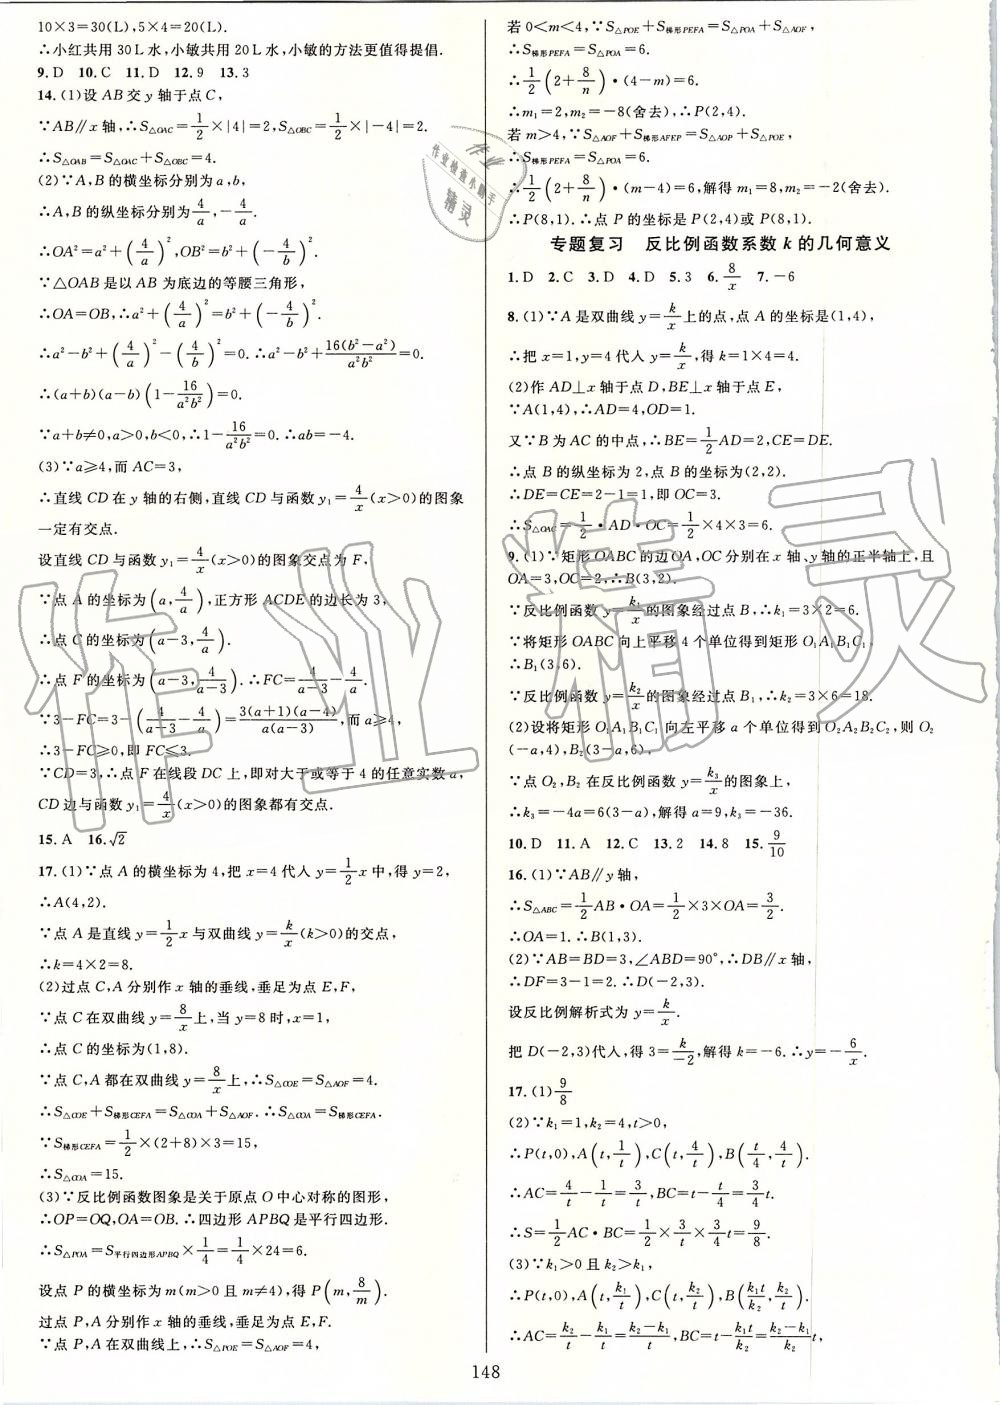 10×3=30(L),5×4=20(L).
∴小红共用30L水,小敏共用20L水,小敏的方法更值得提倡.
9. D 10. C 11. D 12. 9 13. 3
14. (1)设AB交y轴于点C,
∵AB∥x轴,∴S△OAC=1/2×|4|=2,S△OBC=1/2×|-4|=2.
∴S△OAB=S△OAC+S△OBC=4.
(2)∵A,B的横坐标分别为a,b,
∴A,B的纵坐标分别为4/a,-4/b.
∴OA²=a²+(4/a)²,OB²=b²+(-4/b)².
∵△OAB是以AB为底边的等腰三角形,
∴OA=OB,∴a²+(4/a)²=b²+(-4/b)².
∴a²-b²+(4/a)²-(4/b)²=0.∴a²-b²+16(b²-a²)/a²b²=0.
∴(a+b)(a-b)(1-16/a²b²)=0.
∵a+b≠0,a>0,b<0,∴1-16/a²b²=0.∴ab=-4.
(3)∵a≥4,而AC=3,
∴直线CD在y轴的右侧,直线CD与函数y₁=4/x(x>0)的图象
一定有交点.
设直线CD与函数y₁=4/x(x>0)的图象交点为F,
∵点A的坐标为(a,4/a),正方形ACDE的边长为3,
∴点C的坐标为(a-3,4/a).
∴点F的坐标为(a-3,4/(a-3)).∴FC=4/(a-3)-4/a.
∵3-FC=3-(4/(a-3)-4/a)=3(a+1)(a-4)/a(a-3),而a≥4,
∴3-FC≥0,即FC≤3.
∵CD=3,∴点F在线段DC上,即对大于或等于4的任意实数a,
CD边与函数y₁=4/x(x>0)的图象都有交点.
15. A 16. √2
17. (1)∵点A的横坐标为4,把x=4代入y=1/2x中,得y=2,
∴A(4,2).
∵点A是直线y=1/2x与双曲线y=k/x(k>0)的交点,
∴k=4×2=8.
(2)过点C,A分别作x轴的垂线,垂足为点E,F,
∵点C在双曲线y=8/x上,当y=8时,x=1,
∴点C的坐标为(1,8).
∵点C,A都在双曲线y=8/x上,∴S△COE=S△AOF=4.
∴S△COE+S梯形CEFA=S△COA+S△AOF.∴S△COA=S梯形CEFA.
∵S梯形CEFA=1/2×(2+8)×3=15,
∴S△COA=15.
(3)∵反比例函数图象是关于原点O中心对称的图形,
∴OP=OQ,OA=OB.∴四边形APBQ是平行四边形.
∴S△POA=S平行四边形APBQ×1/4=1/4×24=6.
设点P的横坐标为m(m>0且m≠4),得P(m,8/m).
过点P,A分别作x轴的垂线,垂足为点E,F.
∵点P,A在双曲线上,∴S△POE=S△AOF=4,
若0<m<4,∵S△POE+S梯形PEFA=S△POA+S△AOF,
∴S梯形PEFA=S△POA=6.
∴1/2(2+8/n)·(4-m)=6.
∴m₁=2,m₂=-8(舍去),∴P(2,4).
若m>4,∵S△AOF+S梯形AFEP=S△AOP+S△POE,
∴S梯形PEFA=S△POA=6.
∴1/2(2+8/n)·(m-4)=6,解得m₁=8,m₂=-2(舍去).
∴P(8,1).∴点P的坐标是P(2,4)或P(8,1).
专题复习 反比例函数系数k的几何意义
1. D 2. C 3. D 4. D 5. 3 6. 8/x 7. -6
8. (1)∵A是双曲线y=k/x上的点,点A的坐标是(1,4),
∴把x=1,y=4代入y=k/x,得k=1×4=4.
(2)作AD⊥x轴于点D,BE⊥x轴于点E,
∵A(1,4),∴AD=4,OD=1.
又∵B为AC的中点,∴BE=1/2AD=2,CE=DE.
∴点B的纵坐标为2,点B的坐标为(2,2).
∴DE=CE=2-1=1,即OC=3.
∴S△OAC=1/2·AD·OC=1/2×4×3=6.
9. (1)∵矩形OABC的边OA,OC分别在x轴、y轴的正半轴上,且
OA=3,OC=2,∴B(3,2).
∵反比例函数y=k₁/x的图象经过点B,∴k₁=3×2=6.
∵将矩形OABC向上平移4个单位得到矩形O₁A₁B₁C₁,
∴B₁(3,6).
∵反比例函数y=k₂/x的图象经过点B₁,∴k₂=3×6=18.
(2)设将矩形O₁A₁B₁C₁向左平移a个单位得到O₂A₂B₂C₂,则O₂
(-a,4),B₂(3-a,6),
∵点O₂,B₂在反比例函数y=k₃/x的图象上,
∴k₃=-4a=6(3-a),解得a=9,k₃=-36.
10. D 11. A 12. C 13. 2 14. 8 15. 9/10
16. (1)∵AB∥y轴,
∴S△ABC=1/2AB·OA=1/2×3×OA=3/2.
∴OA=1.∴B(1,3).
(2)∵AB=BD=3,∠ABD=90°,∴DB∥x轴,
∴DF=3-1=2.∴D(-2,3).
设反比例解析式为y=k/x.
把D(-2,3)代入,得3=k/-2,解得k=-6.∴y=-6/x.
17. (1)9/8
(2)∵k₁=1,k₂=4,t>0,
∴P(t,0),A(t,1/t),C(t,4/t),B(t/4,4/t).
∴AC=4/t-1/t=3/t,BC=t-t/4=3/4t.
∴S=1/2AC·BC=1/2×3/t×3/4t=9/8.
(3)∵k₁>0且k₂>k₁,
∴P(t,0),A(t,k₁/t),C(t,k₂/t),B(k₁t/k₂,k₂/t).
∴AC=k₂/t-k₁/t=(k₂-k₁)/t,BC=t-k₁t/k₂=(k₂-k₁)/k₂t,
148
作业精灵
作业
作业检查小助手
精灵